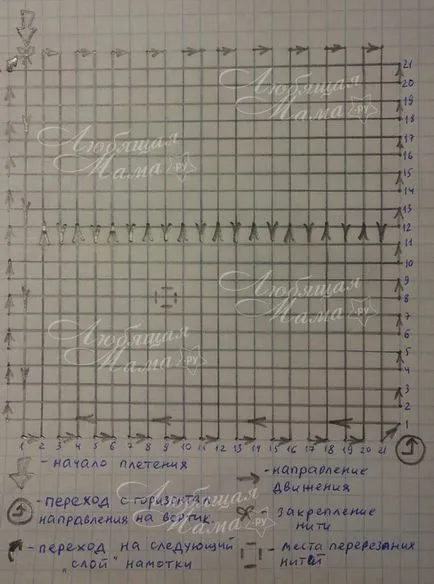 21
20
19
18
17
16
15
14
13
12
11
10
9
8
7
6
5
4
3
2
1
Любящая
Мама.РУ
Любящая
Мама.РУ
Любящая
Мама.РУ
Любящая
Мама.РУ
1 2 3 4 5 6 7 8 9 10 11 12 13 14 15 16 17 18 19 20 21
- начало плетения
- переход с горизонтал.
направления на вертик.
- переход на следующий
"слой" намотки
- направление
движения
- закрепление
нити
- места перерезания
нитей
Любящая
Мама.РУ